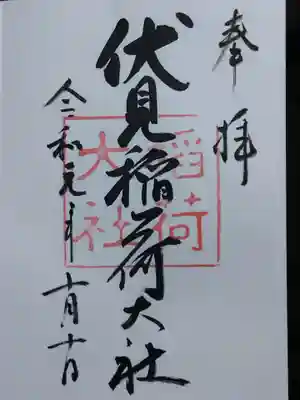 奉拝
伏見稲荷大社
稲荷
大社
令和元年十月十日